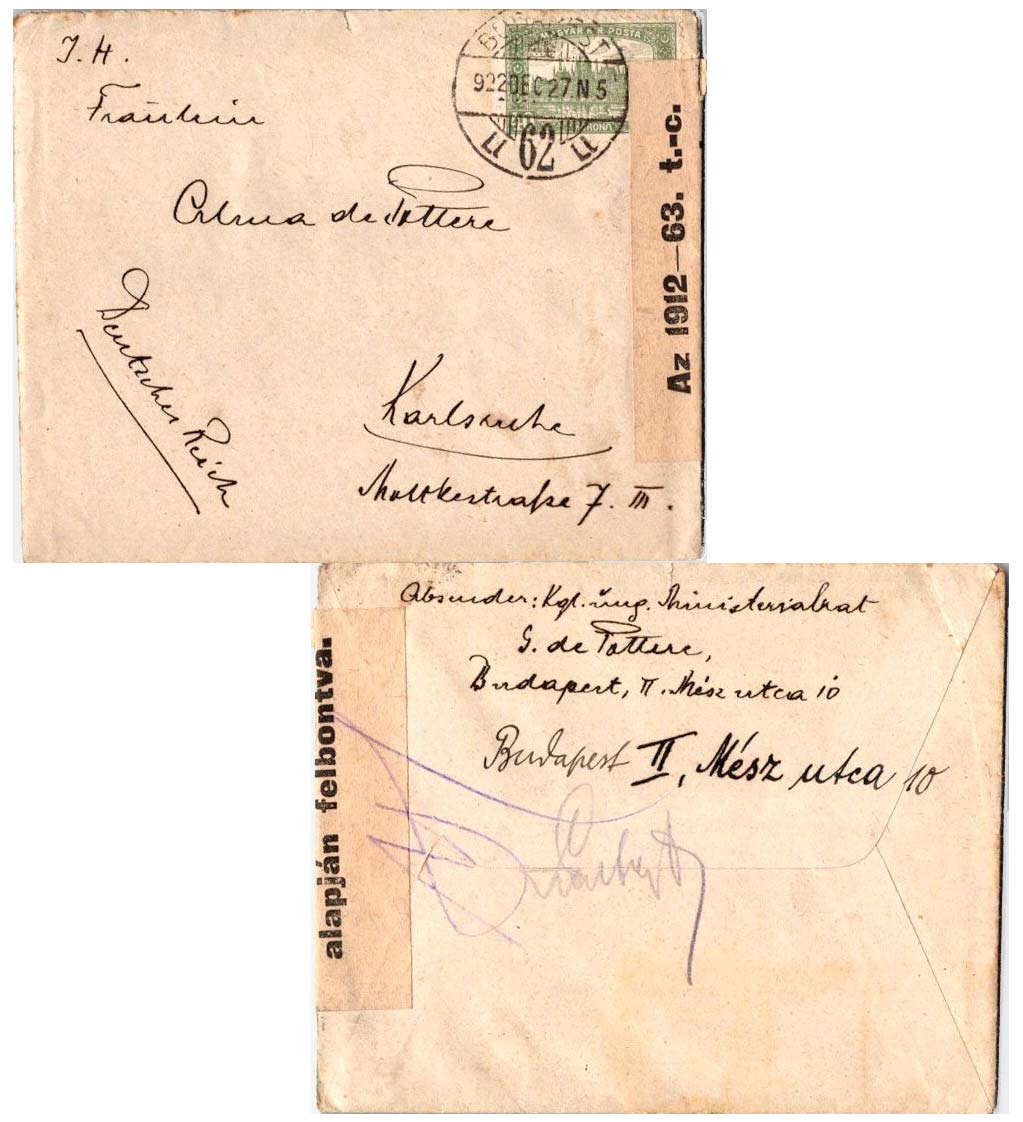 I. H.
Fräulein
de Pottere
Deutsches Reich
Karlsruhe
Moltkestraße 7. III.
MAGYAR KIR. POSTA
KORONA
BUDAPEST
922 DEC 27 N 5
62
Az 1912—63. t.-c.
alapján felbontva.
Absender: Kgl. ung. Ministerialrat
G. de Pottere,
Budapest, II. Mész utca 10
Budapest II, Mész utca 10